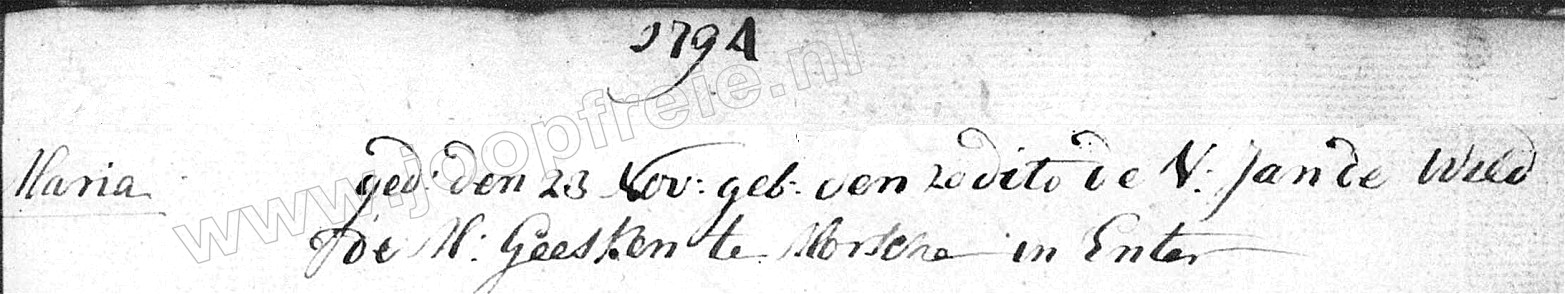 1794
Maria ged: den 23 Nov: geb: den 20 dito de V: Jan de Wild
de M: Geesken te Morsche in Enter
www.joopfreie.nl